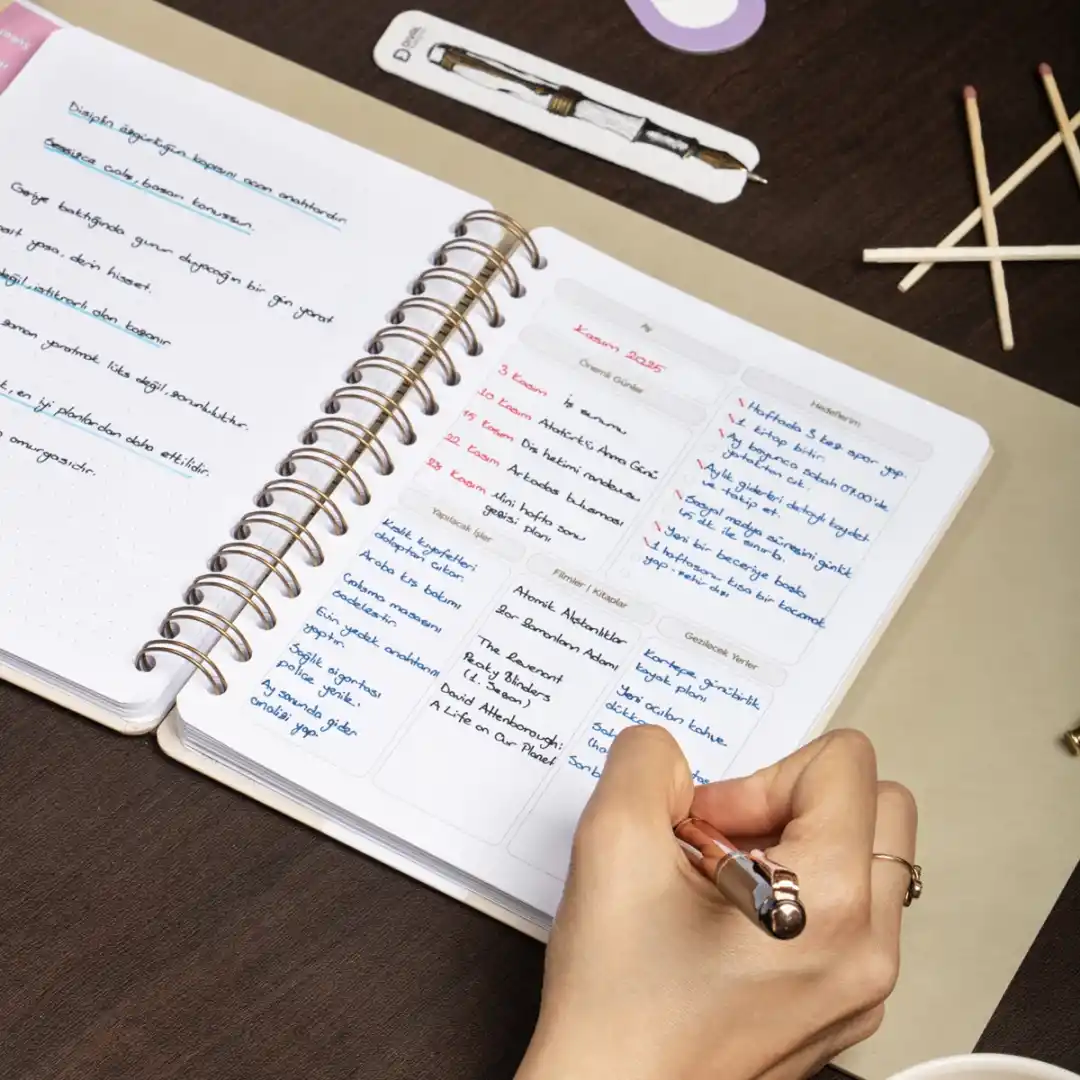 Disiplin özgürlüğün kapısını açan anahtardır.
Sessizce çalış, başarı konuşsun.
Geriye baktığında gurur duyacağın bir gün yarat
yaşa, derin hisset.
değil, istikrarlı olan kazanır
zaman yaratmak lüks değil, zorunluluktur.
, en iyi planlardan daha etkilidir.
omurgasıdır.
Ay
Kasım 2025
Önemli Günler
3 Kasım İş sunumu
10 Kasım Atatürk'ü Anma Günü
15 Kasım Diş hekimi randevusu
22 Kasım Arkadaş buluşması
28 Kasım Mini hafta sonu
gezisi planı
Hedeflerim
Haftada 3 kez spor yap.
1 kitap bitir.
Ay boyunca sabah 07.00'de
yataktan çık.
Aylık giderleri detaylı kaydet
ve takip et.
Sosyal medya süresini günlük
45 dk. ile sınırla.
Yeni bir beceriye başla
1 haftasonu kısa bir kaçamak
yap - şehir dışı
Yapılacak İşler
Kışlık kıyafetleri
dolaptan çıkar.
Araba kış bakımı
Çalışma masasını
sadeleştir.
Evin yedek anahtarını
yaptır.
Sağlık sigortası
police yenile.
Ay sonunda gider
analizi yap.
Filmler | Kitaplar
Atomik Alışkanlıklar
Zor Zamanların Adamı
The Revenant
Peaky Blinders
(1. Sezon)
David Attenborough:
A Life on Our Planet
Gezilecek Yerler
Kartepe günübirlik
kayak planı
Yeni açılan kahve